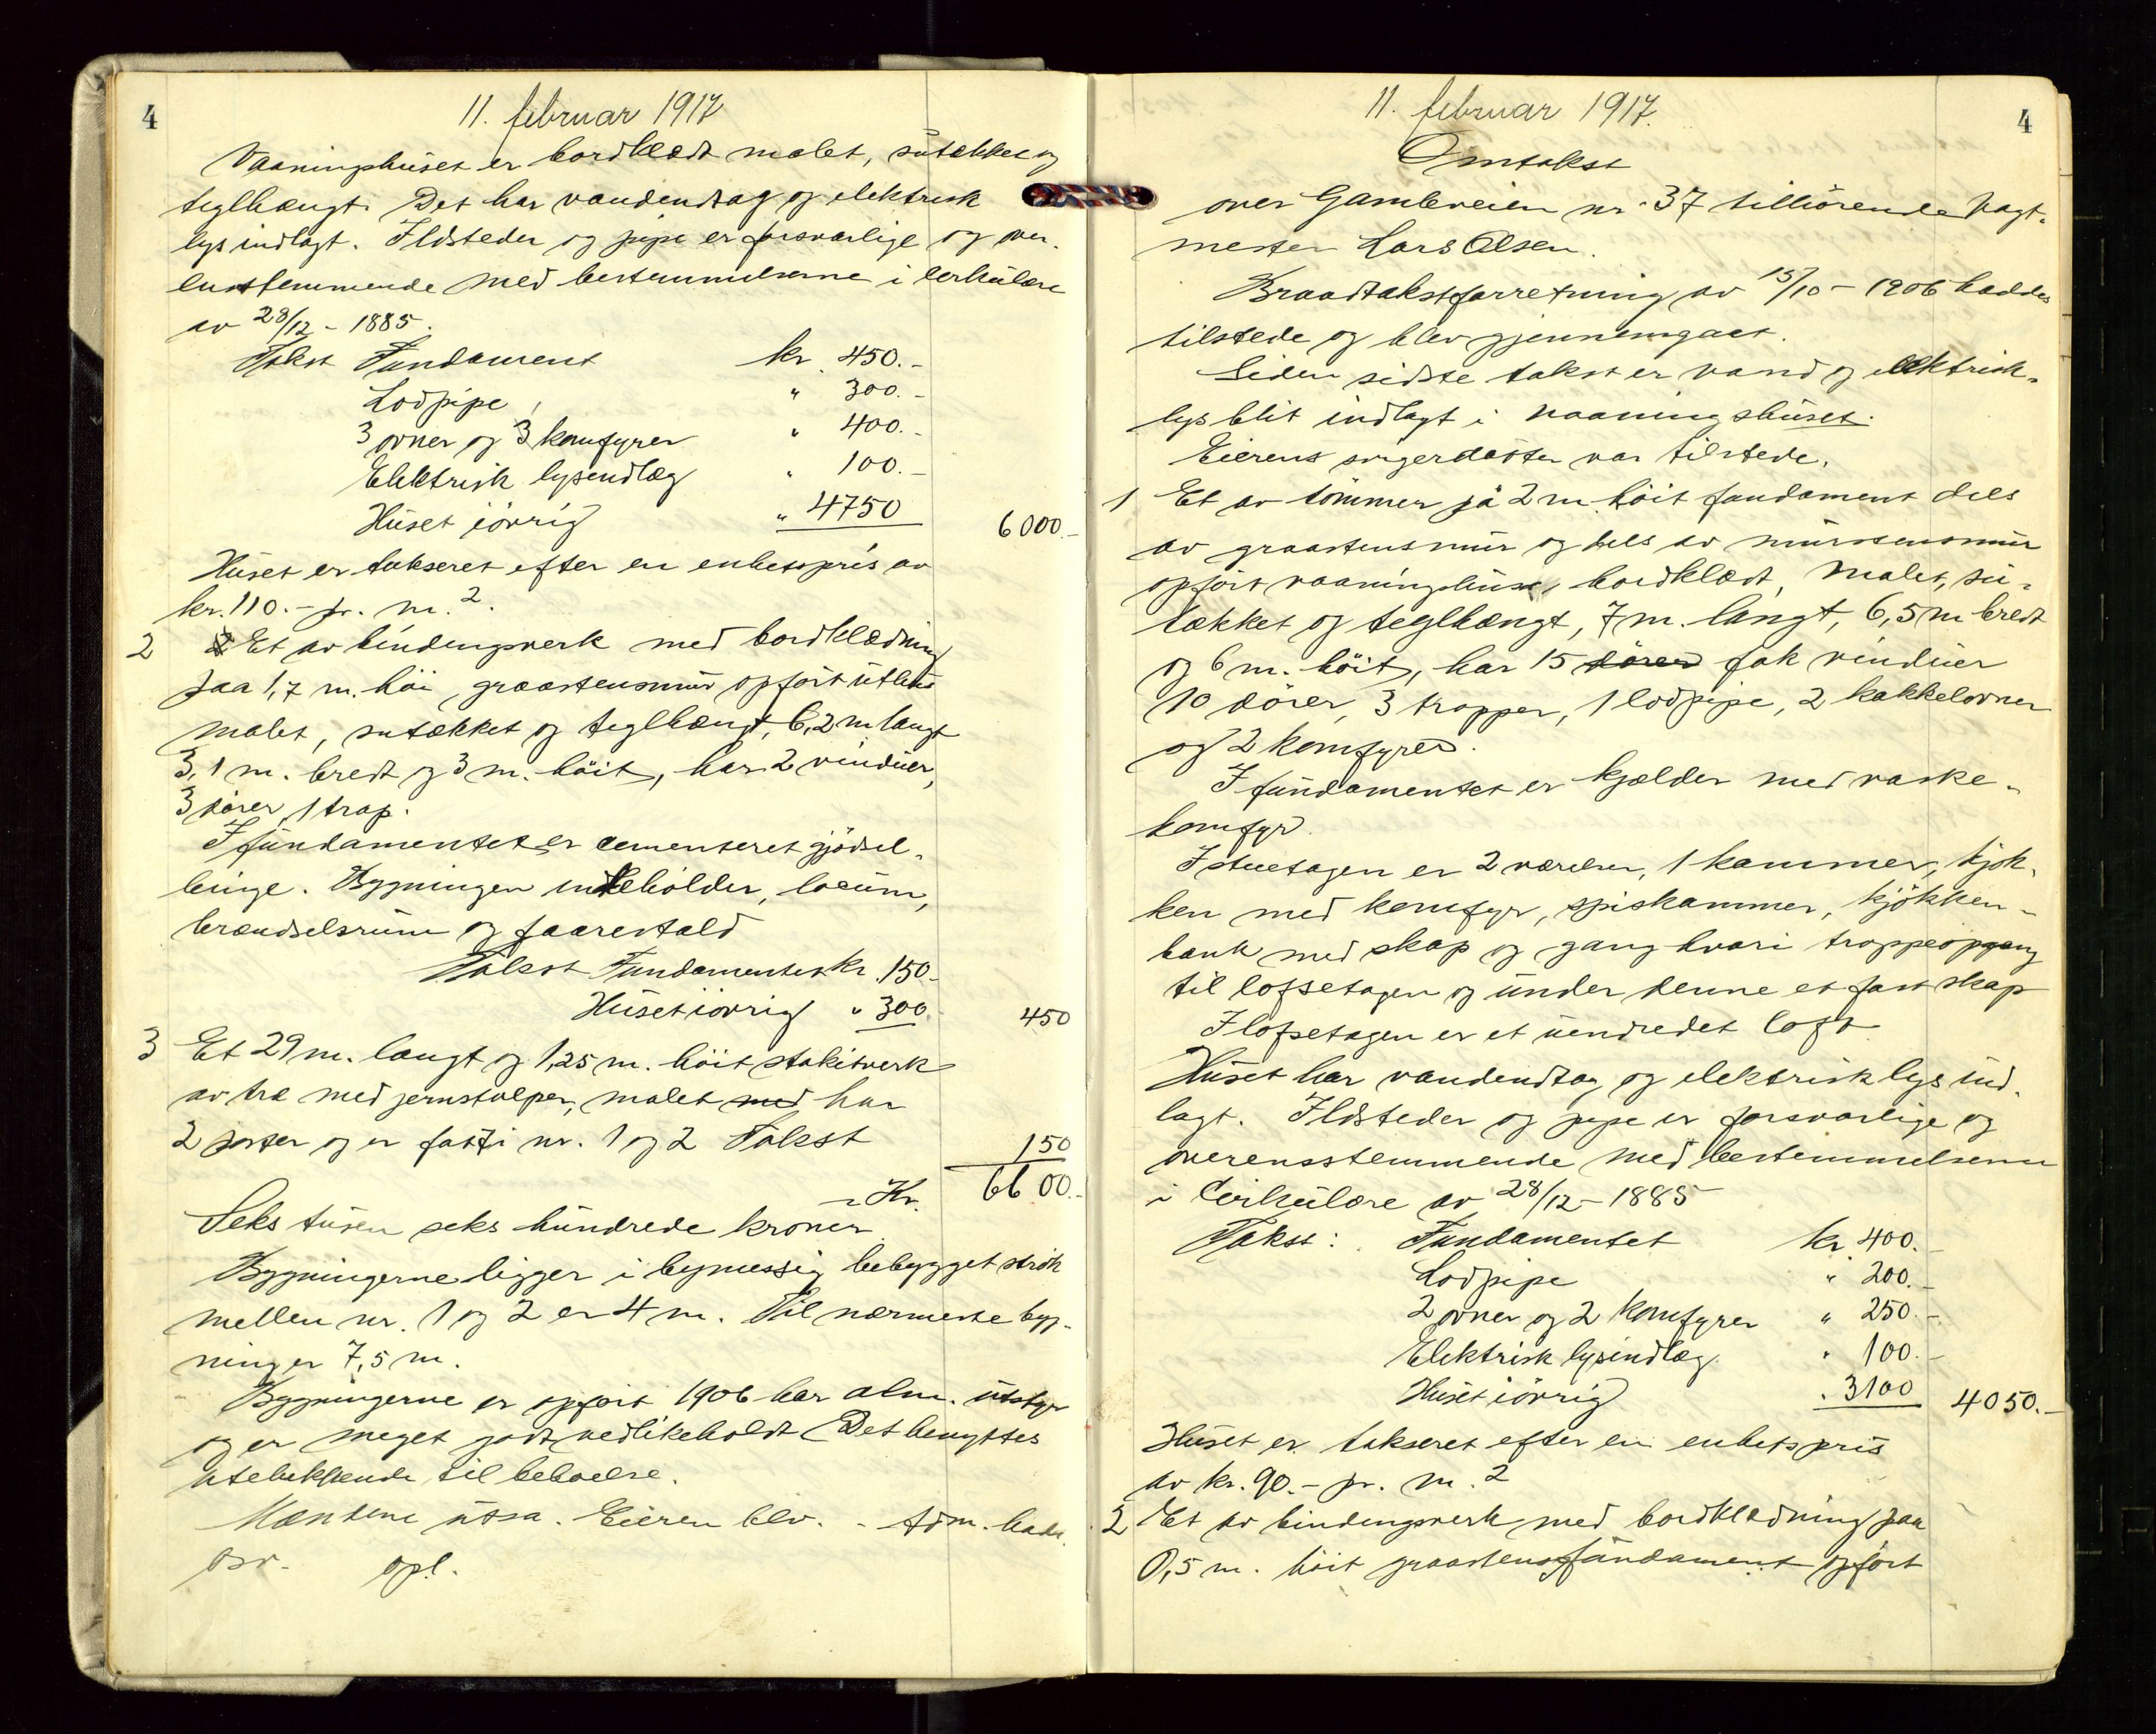 4
11. februar 1917
Vaaningshuset er bordklædt malet, sutækket og
teglhængt. Det har vandindtag og elektrisk
lys indlagt. Ildsteder og pipe er forsvarlige og over-
ensstemmende med bestemmelserne i cirkulære
av 28/12 - 1885.
Takst Fundament kr. 450.-
Lodpipe " 300.-
3 ovner og 3 komfyrer " 400.-
Elektrisk lysindlæg " 100.-
Huset iövrig " 4750 6000.-
Huset er takseret efter en enhetspris av
kr. 110.- pr. m.2.
2 Et av bindingsverk med bordklædning
paa 1,7 m. höi, graastensmur opfört uthus
malet, sutækket og teglhængt, 6,2 m langt
3,1 m. bredt og 3 m. höit, har 2 vinduer,
3 dörer, 1 trap.
I fundamentet er cementeret gjödsel-
binge. Bygningen indeholder, locum,
brændselsrum og faarestald
Takst Fundamentet kr. 150.-
Huset iövrig " 300.- 450
3 Et 29 m. langt og 1,25 m. höit stakitverk
av træ med jernstolper, malet med har
2 porter og er fast i nr. 1 og 2 Takst 150
Kr. 6600.-
Seks tusen seks hundrede kroner
Bygningerne ligger i bymessig bebygget strök
mellem nr. 1 og 2 er 4 m. Til nærmeste byg-
ning er 7,5 m.
Bygningerne er opfört 1906 har alm. utstyr
og er meget godt vedlikeholdt. Det benyttes
utelukkende til beboelse.
Mændene utsa. Eieren blev. - Adm. hadde
osv. opl.
4
11. februar 1917.
Omtakst
over Gamleveien nr. 37 tilhörende Vagt-
mester Lars Olsen.
Brandtakstforretning av 15/10 - 1906 haddes
tilstede og blev gjennemgaat.
Siden sidste takst er vand og elektrisk-
lys blit indlagt i vaaningshuset.
Eierens svigerdatter var tilstede.
1 Et av tömmer på 2 m. höit fundament dels
av graastensmur og dels av murstensmur
opfört vaaningshus, bordklædt, malet, su-
tækket og teglhængt, 7 m. langt, 6,5 m bredt
og 6 m. höit, har 15 dörer fak vinduer
10 dörer, 3 trapper, 1 lodpipe, 2 kakkelovner
og 2 komfyrer.
I fundamentet er kjælder med vaske-
komfyr.
I stuetagen er 2 værelser, 1 kammer, kjök-
ken med komfyr, spiskammer, kjökken-
bank med skap og gang hvori trappeopgang
til loftsetagen og under denne et fast skap
I loftsetagen er et uendredet loft.
Huset har vandindtag og elektrisk lys ind-
lagt. Ildsteder og pipe er forsvarlige og
overensstemmende med bestemmelserne
i Cirkulære av 28/12 - 1885
Takst: Fundamentet kr. 400.-
Lodpipe " 200.-
2 ovner og 2 komfyrer " 250.-
Elektrisk lysindlæg " 100.-
Huset iövrig " 3100 4050.-
Huset er takseret efter en enhetspris
av kr. 90.- pr. m.2
2 Et av bindingsverk med bordklædning paa
0,5 m. höit graastensfundament opfört